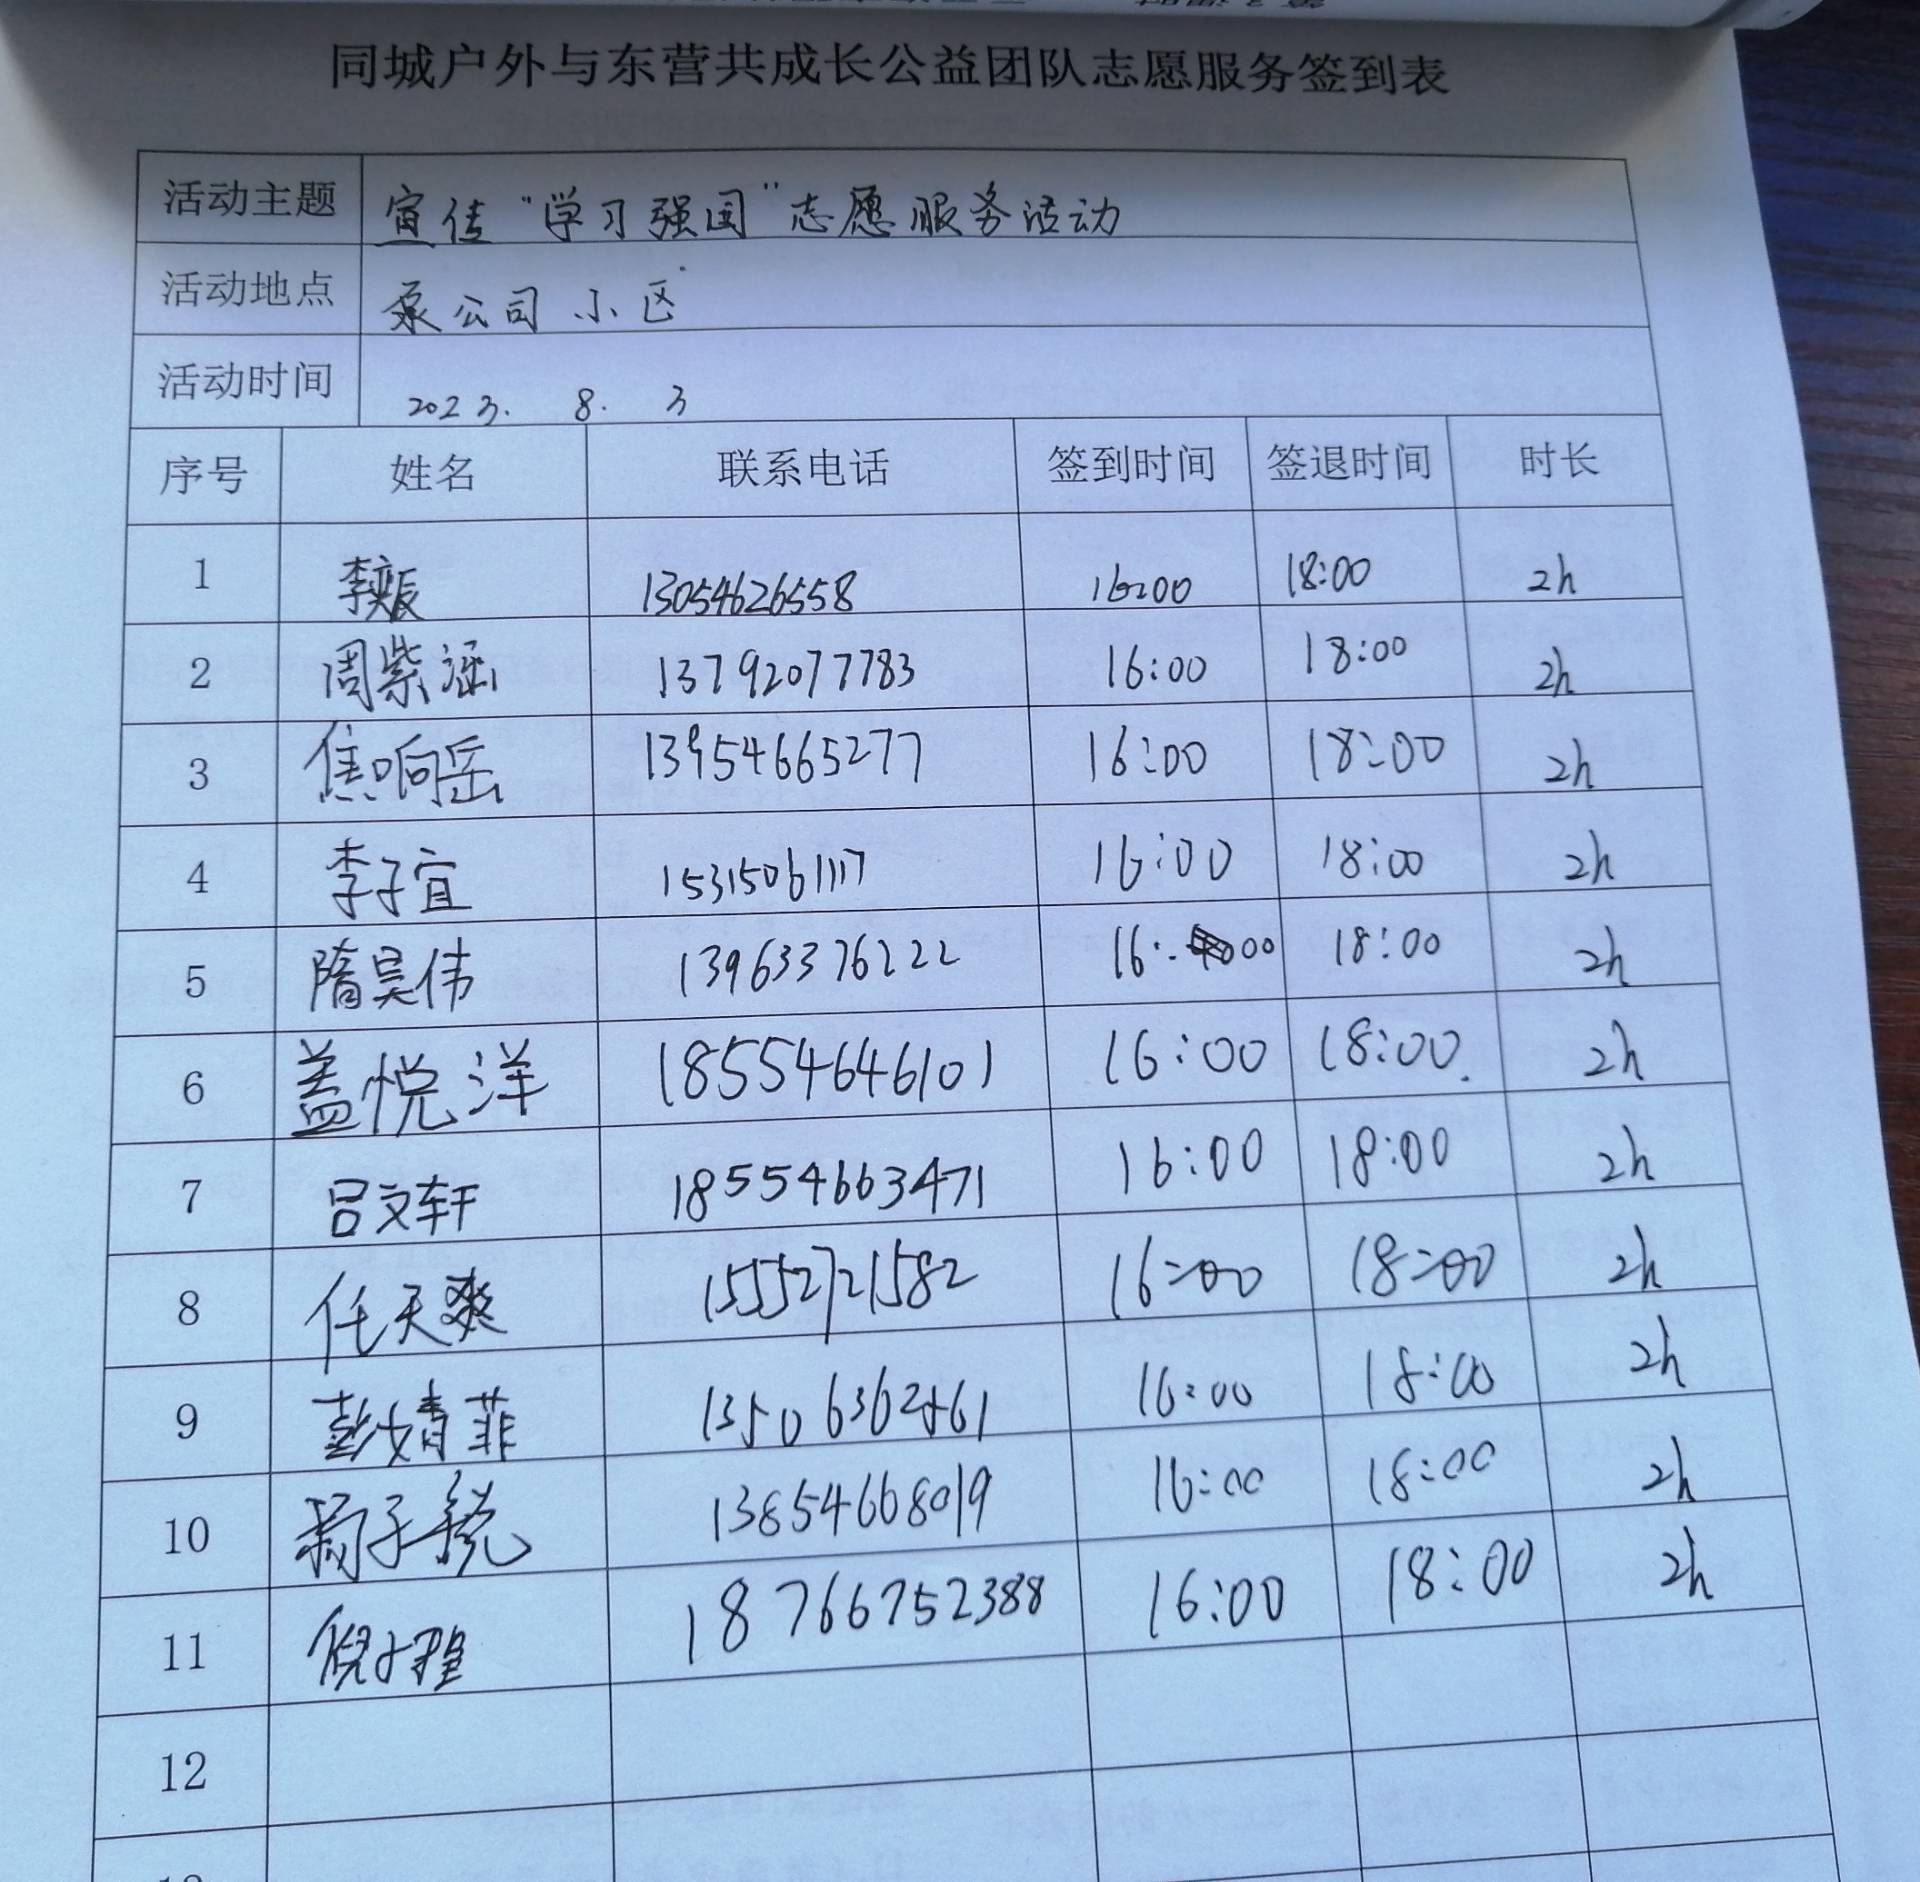 同城户外与东营共成长公益团队志愿服务签到表
活动主题 宣传“学习强国”志愿服务活动
活动地点 泵公司小区
活动时间 2023. 8. 3
序号 姓名 联系电话 签到时间 签退时间 时长
1 李 13054626558 16:00 18:00 2h
2 周紫涵 13792077783 16:00 18:00 2h
3 焦响岳 13954665277 16:00 18:00 2h
4 李子宜 15315061117 16:00 18:00 2h
5 隋昊伟 13963376222 16:00 18:00 2h
6 盖悦洋 18554646101 16:00 18:00 2h
7 吕文轩 18554663471 16:00 18:00 2h
8 任天爽 15552721582 16:00 18:00 2h
9 彭婧菲 13506362561 16:00 18:00 2h
10 子锐 13854668019 16:00 18:00 2h
11 倪 18766752388 16:00 18:00 2h
12